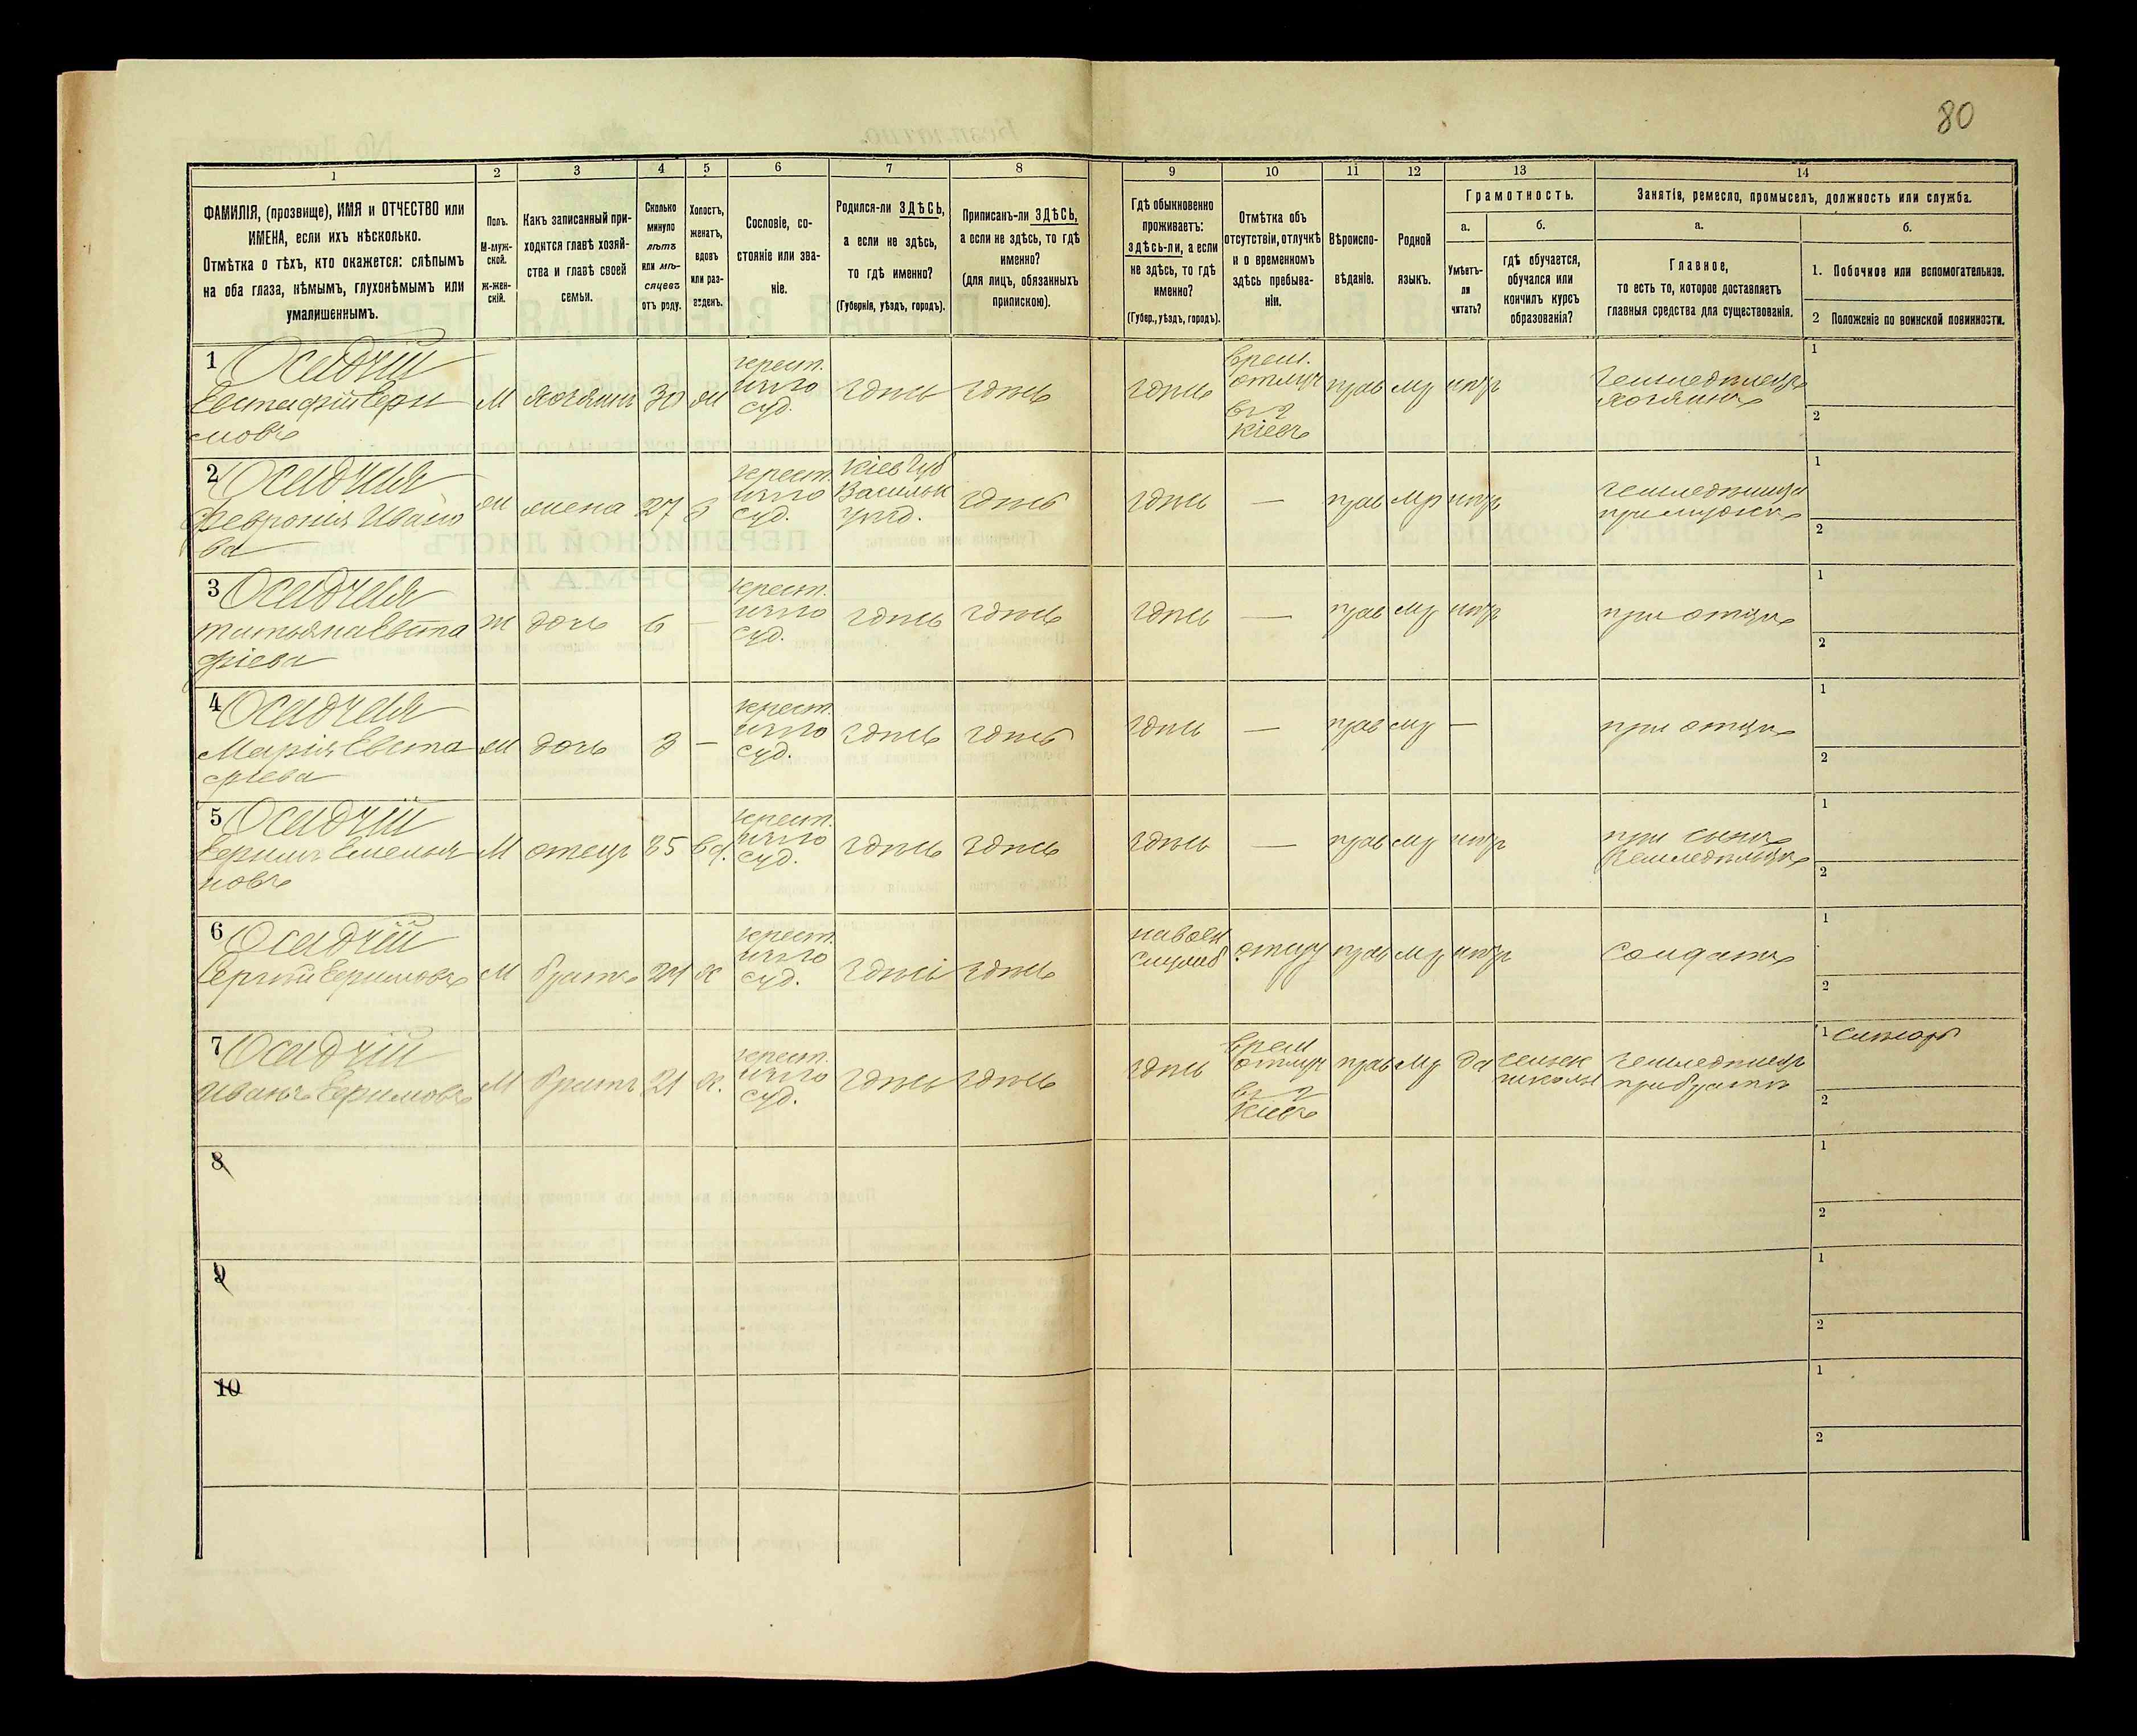 80
1
2
3
4
5
6
7
8
9
10
11
12
13
14
ФАМИЛІЯ, (прозвище), ИМЯ и ОТЧЕСТВО или
ИМЕНА, если ихъ нѣсколько.
Отмѣтка о тѣхъ, кто окажется: слѣпымъ
на оба глаза, нѣмымъ, глухонѣмымъ или
умалишеннымъ.
Полъ.
М-муж-
ской.
Ж-жен-
скій.
Какъ записанный при-
ходится главѣ хозяй-
ства и главѣ своей
семьи.
Сколько
минуло
лѣтъ
или мѣ-
сяцевъ
отъ роду.
Холостъ,
женатъ,
вдовъ
или раз-
веденъ.
Сословіе, со-
стояніе или зва-
ніе.
Родился-ли ЗДѢСЬ,
а если не здѣсь,
то гдѣ именно?
(Губернія, уѣздъ, городъ).
Приписанъ-ли ЗДѢСЬ,
а если не здѣсь, то гдѣ
именно?
(для лицъ, обязанныхъ
припискою).
Гдѣ обыкновенно
проживаетъ:
здѣсь-ли, а если
не здѣсь, то гдѣ
именно?
(Губер., уѣздъ, городъ).
Отмѣтка объ
отсутствіи, отлучкѣ
и о временномъ
здѣсь пребыва-
ніи.
Вѣроиспо-
вѣданіе.
Родной
языкъ.
Грамотность.
а.
б.
Умѣетъ-
ли
читать?
гдѣ обучается,
обучался или
кончилъ курсъ
образованія?
Занятія, ремесло, промыселъ, должность или служба.
а.
б.
Главное,
то есть то, которое доставляетъ
главныя средства для существованія.
1. Побочное или вспомогательное.
2 Положеніе по воинской повинности.
1 Осадчій
Евстафій Ери
мовъ
М
хозяинъ
30
ж
крест.
суд.
здѣсь
здѣсь
здѣсь
врем.
отлуч
въ г
Кіевъ
прав
мр
нѣтъ
земледѣлецъ
хозяинъ
1
2
2 Осадчая
Феврония Ивано
ва
ж
жена
27
з
крест.
суд.
Кіев губ
Васильк
уѣзд.
здѣсь
здѣсь
—
прав
мр
нѣтъ
при мужѣ
1
2
3 Осадчая
Татьяна Евста
фіева
ж
дочь
6
—
крест.
суд.
здѣсь
здѣсь
здѣсь
—
прав
мр
нѣтъ
при отцѣ
1
2
4 Осадчая
Марія Евста
фіева
ж
дочь
3
—
крест.
суд.
здѣсь
здѣсь
здѣсь
—
прав
мр
—
при отцѣ
1
2
5 Осадчій
Еримъ Емелья
новъ
М
отецъ
вд.
крест.
суд.
здѣсь
здѣсь
здѣсь
—
прав
мр
нѣтъ
при сынѣ
1
2
6 Осадчій
Сергѣй Еримовъ
М
братъ
24
х
крест.
суд.
здѣсь
здѣсь
на воен
служб
отсут
прав
мр
нѣтъ
солдатъ
1
2
7 Осадчій
Иванъ Еримовъ
М
братъ
21
х.
крест.
суд.
здѣсь
здѣсь
здѣсь
врем
отлуч
въ г
Кіевъ
прав
мр
да
сельск
школы
земледѣлецъ
при братѣ
1 слѣсарь
2
8
1
2
9
1
2
10
1
2